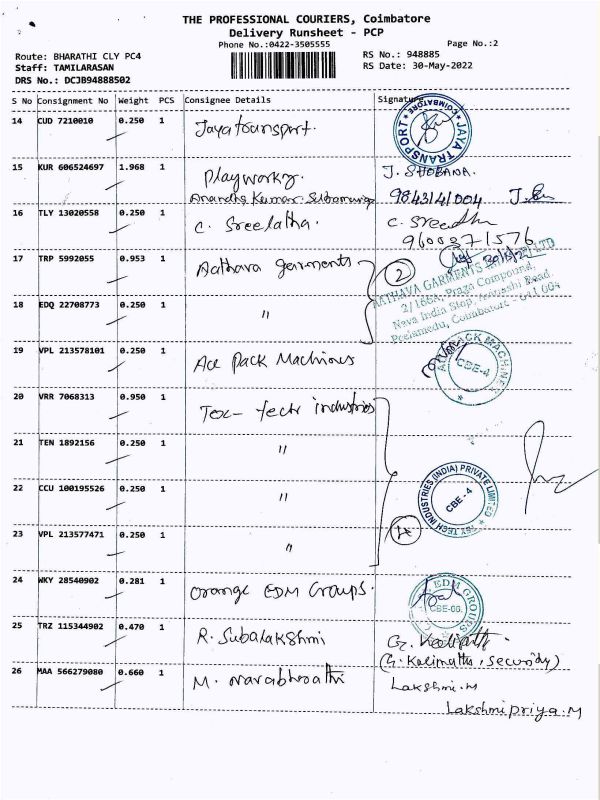 THE PROFESSIONAL COURIERS, Coimbatore
Delivery Runsheet - PCP
Phone No.:0422-3505555
Page No.:2
Route: BHARATHI CLY PC4
RS No.: 948885
Staff: TAMILARASAN
RS Date: 30-May-2022
DRS No.: DCJB94888502
S No Consignment No Weight PCS Consignee Details Signature
14 CUD 7210010 0.250 1 Jaya transport.
COIMBATORE JAYA TRANSPORT
15 KUR 606524697 1.968 1 Playworkz. J. SHOBANA.
9843141004
16 TLY 13020558 0.250 1 C. Sreelatha. C. Sreedhu
9600371576
17 TRP 5992055 0.953 1 Aathava garments 2
AATHAVA GARMENTS LTD
2/166A, Compound,
Nava India Stop, Avinashi Road,
Peelamedu, Coimbatore - 641 004
18 EDQ 22708773 0.250 1 "
19 VPL 213578101 0.250 1 Ace Pack Machines
ACE PACK MACHINES CBE-4
20 VRR 7068313 0.950 1 Tex-Tech industries
21 TEN 1892156 0.250 1 "
22 CCU 100195526 0.250 1 "
TECH INDUSTRIES (INDIA) PRIVATE LIMITED
CBE - 4
23 VPL 213577471 0.250 1 " 4
24 WKY 28540902 0.281 1 Orange EDM Groups.
EDM GROUPS
CBE-06.
25 TRZ 115344902 0.470 1 R. Subalakshmi
(G. Kalimathu, security)
26 MAA 566279080 0.660 1 M. Lakshmi.M
Lakshmi priya.M